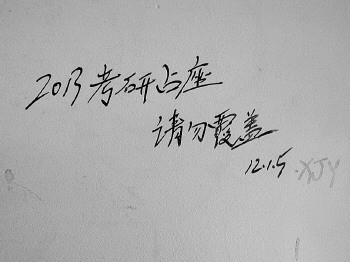 2013考研占座
请勿覆盖
12.1.5 XJY